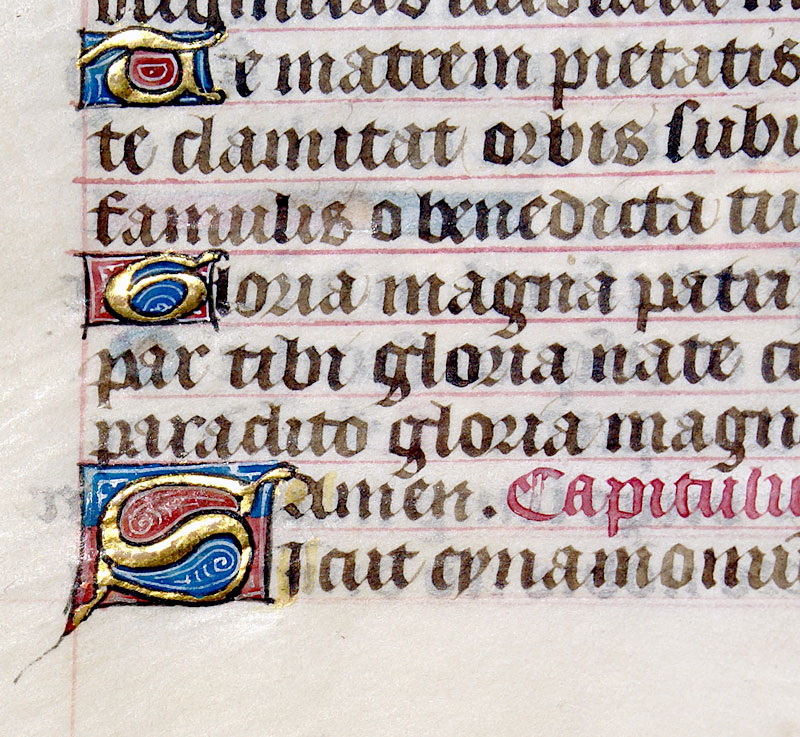 Te matrem pietatis
te clamitat orbis subu
famulis o benedicta tu
Gloria magna patri
par tibi gloria nate c
paraclito gloria magn
amen. Capitulu
Sicut cynamomu